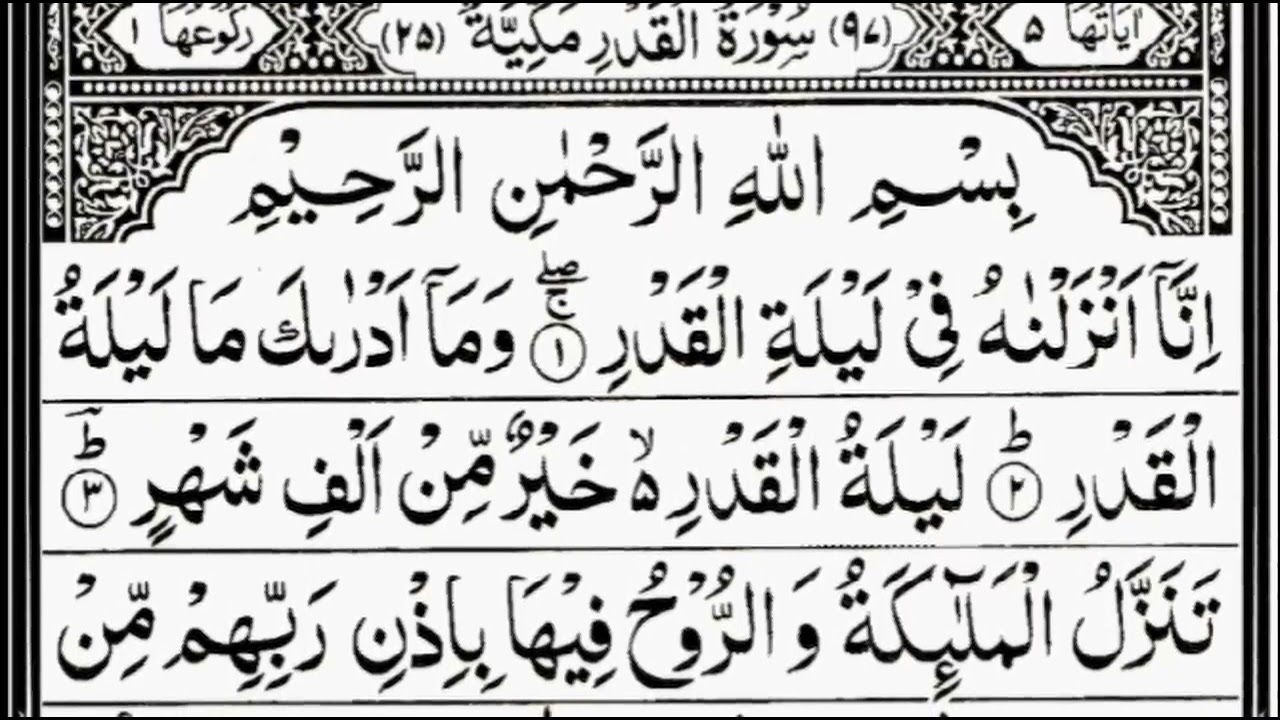 اٰيَاتُهَا ٥ (٩٧) سُوْرَةُ الْقَدْرِ مَكِّيَّةٌ (٢٥) رُكُوْعُهَا ١
بِسْمِ اللهِ الرَّحْمٰنِ الرَّحِيْمِ
اِنَّاۤ اَنْزَلْنٰهُ فِيْ لَيْلَةِ الْقَدْرِ ۖۚ ١ وَمَاۤ اَدْرٰىكَ مَا لَيْلَةُ
الْقَدْرِ ؕ ٢ لَيْلَةُ الْقَدْرِ ۙ۵ خَيْرٌ مِّنْ اَلْفِ شَهْرٍ ؕ ٣
تَنَزَّلُ الْمَلٰٓئِكَةُ وَ الرُّوْحُ فِيْهَا بِاِذْنِ رَبِّهِمْ مِّنْ